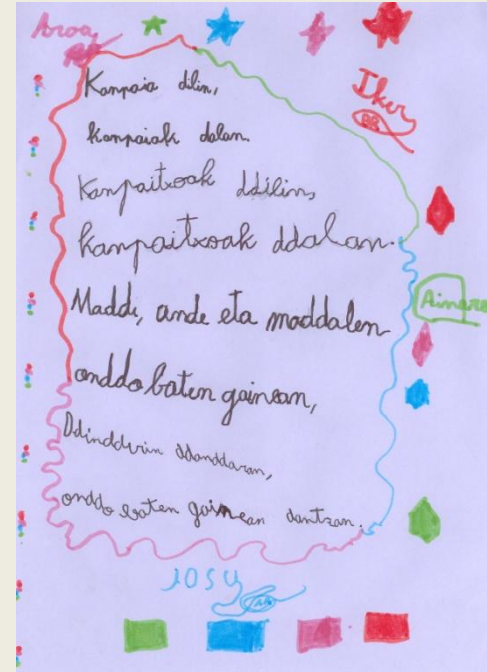 Aroa
Iker
Kanpaia dilin,
kanpaiak dalan.
Kanpaitxoak ddilin,
kanpaitxoak ddalan.
Ainara
Maddi, ande eta maddalen
onddo baten gainean,
Ddinddirin ddanddaran,
onddo baten gainean dantzan.
JOSU